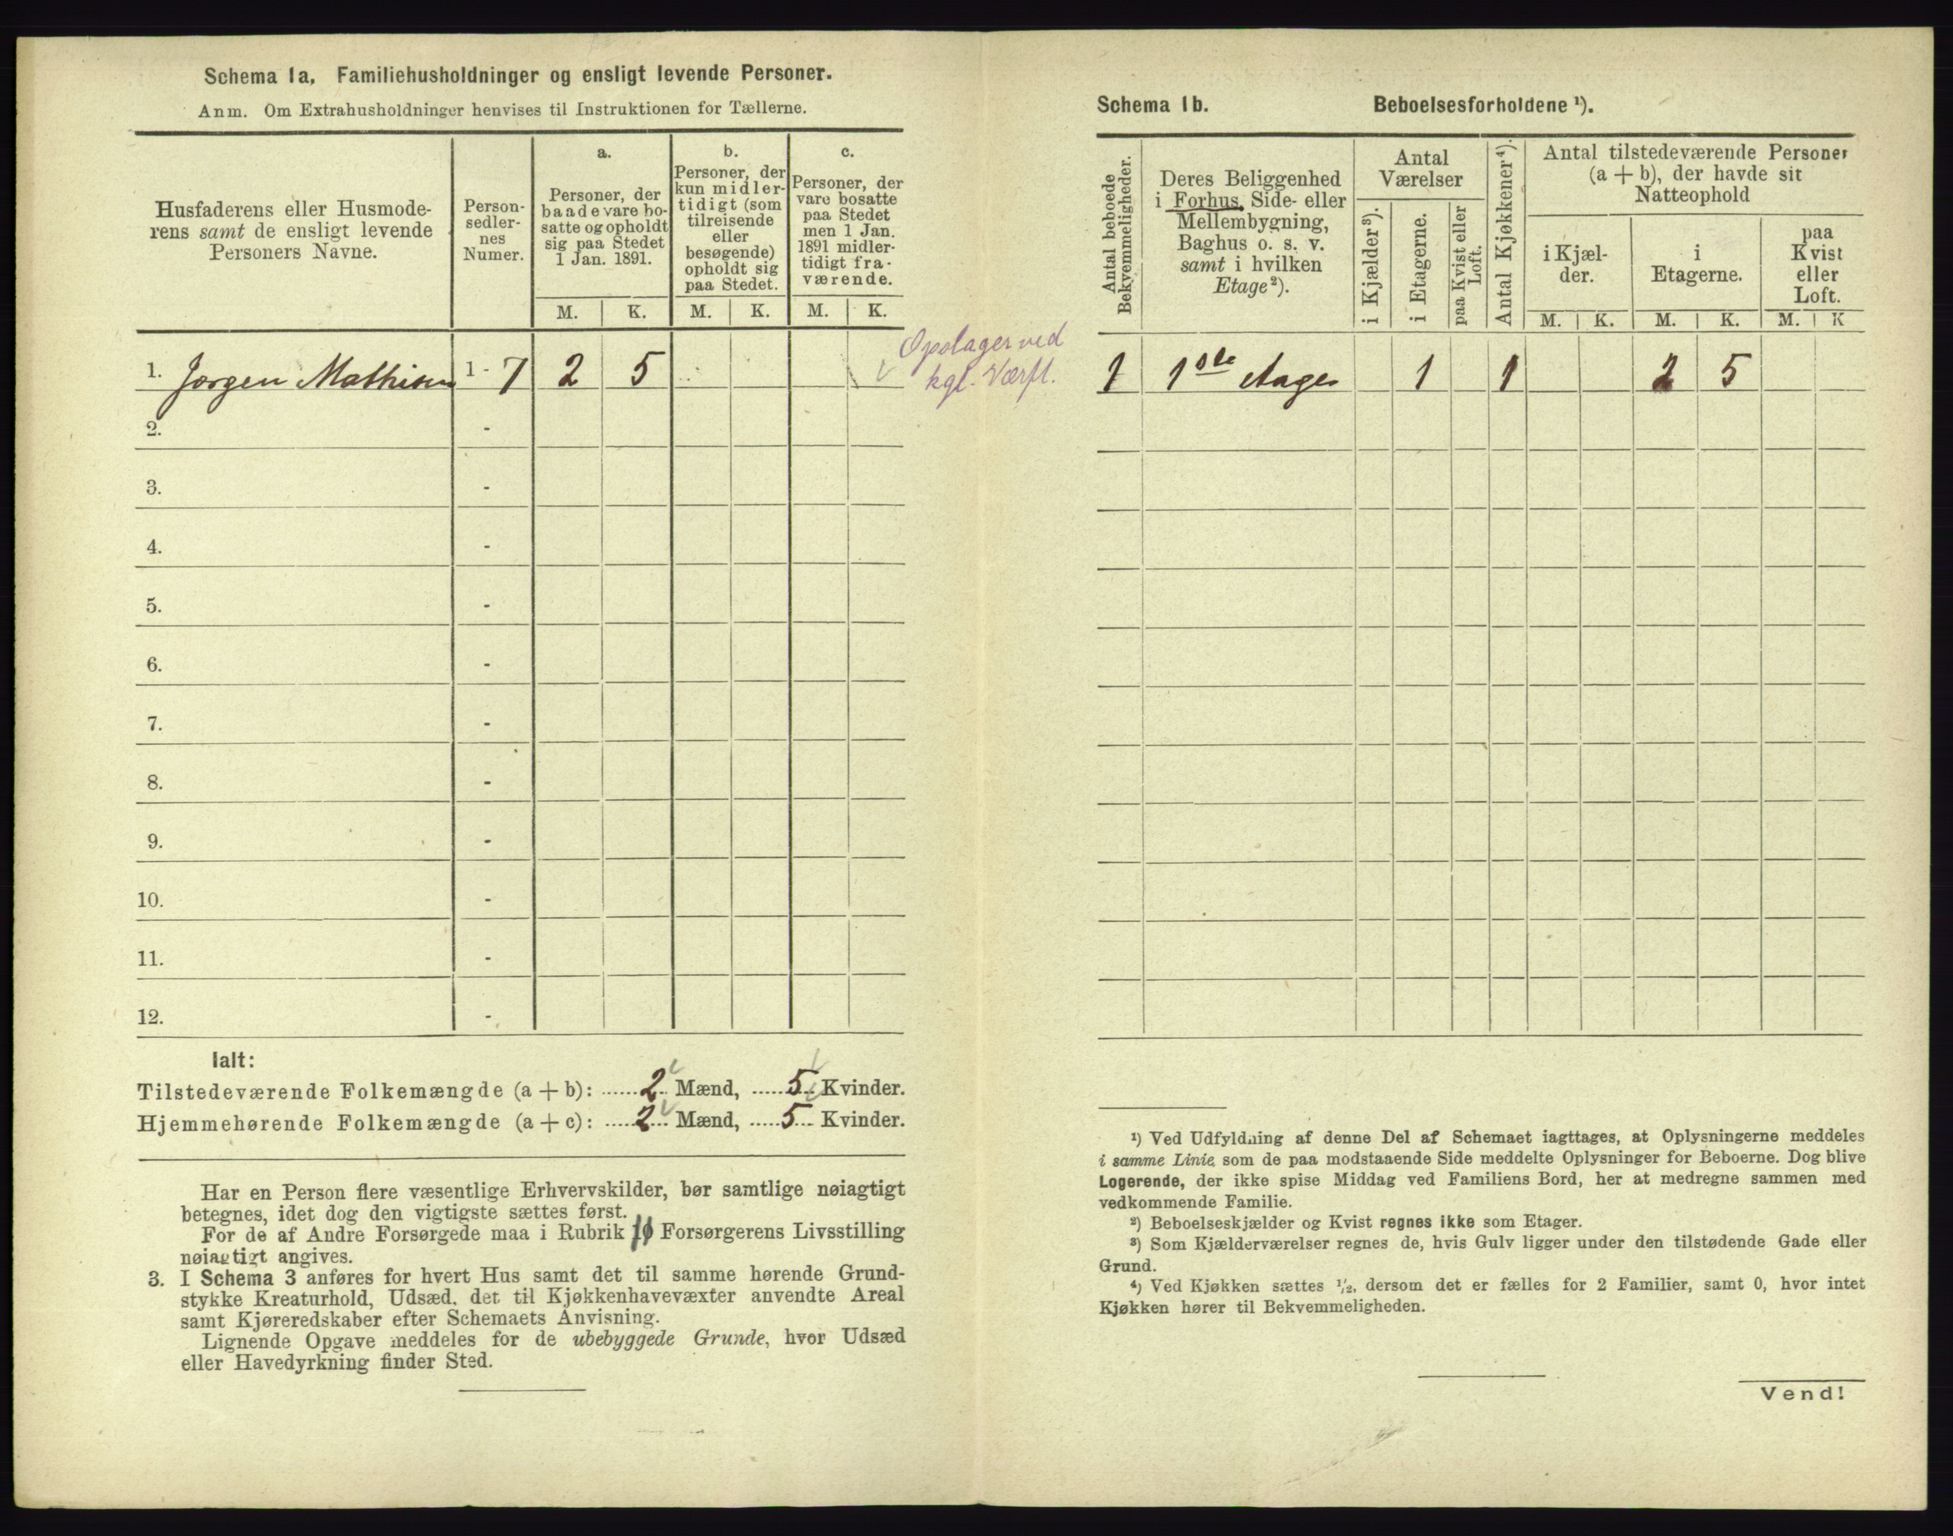 Schema 1a, Familiehusholdninger og ensligt levende Personer.
Anm. Om Extrahusholdninger henvises til Instruktionen for Tællerne.
Husfaderens eller Husmode-
rens samt de ensligt levende
Personers Navne.
Person-
sedler-
nes
Numer.
a.
Personer, der
baade vare bo-
satte og opholdt
sig paa Stedet
1 Jan. 1891.
b.
Personer, der
kun midler-
tidigt (som
tilreisende
eller
besøgende)
opholdt sig
paa Stedet.
c.
Personer, der
vare bosatte
paa Stedet
men 1 Jan.
1891 midler-
tidigt fra-
værende.
M. K. M. K. M. K.
1. Jørgen Mathisen 1 - 7 2 5
2. -
3. -
4. -
5. -
6. -
7. -
8. -
9. -
10. -
11. -
12. -
Ialt:
Tilstedeværende Folkemængde (a + b): ...... 2 .. Mænd, ..... 5 ... Kvinder.
Hjemmehørende Folkemængde (a + c): ..... 2 ... Mænd, ..... 5 ... Kvinder.
Har en Person flere væsentlige Erhvervskilder, bør samtlige nøiagtigt
betegnes, idet dog den vigtigste sættes først.
For de af Andre Forsørgede maa i Rubrik 10 Forsørgerens Livsstilling
nøiagtigt angives.
3. I Schema 3 anføres for hvert Hus samt det til samme hørende Grund-
stykke Kreaturhold, Udsæd, det til Kjøkkenhavevæxter anvendte Areal
samt Kjøreredskaber efter Schemaets Anvisning.
Lignende Opgave meddeles for de ubebyggede Grunde, hvor Udsæd
eller Havedyrkning finder Sted.
Opslager ved
kgl. Værft.
Schema 1b. Beboelsesforholdene ¹).
Antal beboede
Bekvemmeligheder.
Deres Beliggenhed
i Forhus, Side- eller
Mellembygning,
Baghus o. s. v.
samt i hvilken
Etage²).
Antal
Værelser
i Kjælder³).
i Etagerne.
paa Kvist eller
Loft.
Antal Kjøkkener⁴).
Antal tilstedeværende Personer
(a + b), der havde sit
Natteophold
i Kjæl-
der.
i
Etagerne.
paa
Kvist
eller
Loft.
M. K. M. K. M. K
1 1ste Etage 1 1 2 5
¹) Ved Udfyldning af denne Del af Schemaet iagttages, at Oplysningerne meddeles
i samme Linie, som de paa modstaaende Side meddelte Oplysninger for Beboerne. Dog blive
Logerende, der ikke spise Middag ved Familiens Bord, her at medregne sammen med
vedkommende Familie.
²) Beboelseskjælder og Kvist regnes ikke som Etager.
³) Som Kjælderværelser regnes de, hvis Gulv ligger under den tilstødende Gade eller
Grund.
⁴) Ved Kjøkken sættes ½, dersom det er fælles for 2 Familier, samt 0, hvor intet
Kjøkken hører til Bekvemmeligheden.
Vend!